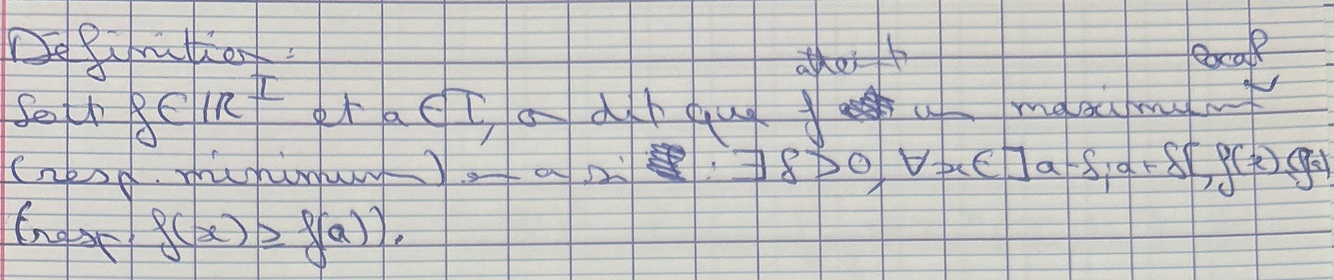 Définition :
Soit f∈IR^I et a∈I, on dit que f atteint un maximum local
(resp. minimum) en a si : ∃δ>0, ∀x∈]a-δ; a+δ[, f(x)≤f(a)
(resp. f(x) ≥ f(a)).